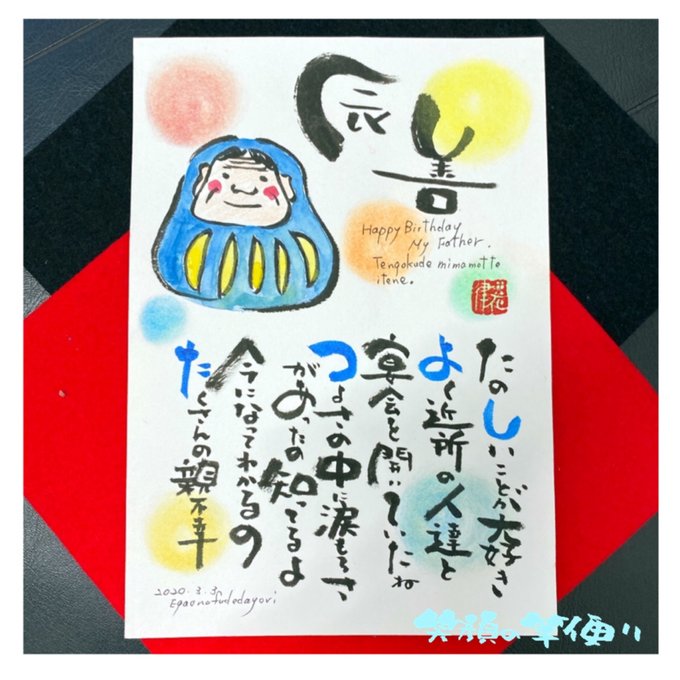 辰善
Happy Birthday
My Father.
Tengokude mimamotte
itene.
たのしいことが大好き
よく近所の人達と
宴会を開いていたね
つよさの中に涙もろさ
があったの知ってるよ
今になってわかるの
たくさんの親不幸
2020.3.3
Egaonofudedayori
笑顔の筆便り